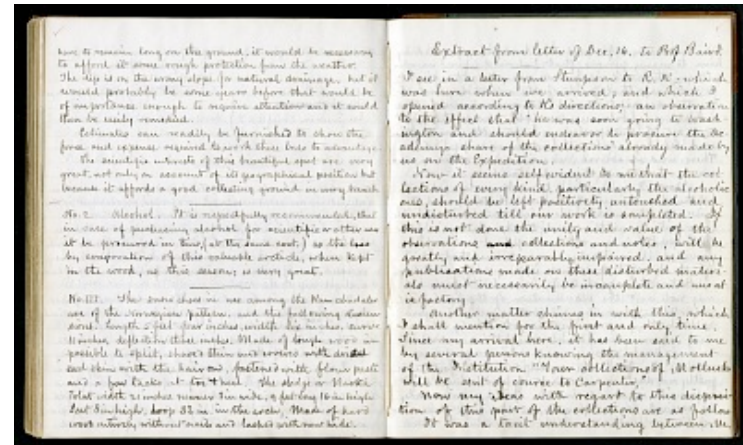 have to remain long on the ground, it would be necessary
to afford it some rough protection from the weather.
The dip is in the wrong slope for natural drainage, but it
would probably be some years before that would be
of importance enough to require attention and it could
then be easily remedied.
Estimates can readily be furnished to show the
force and expense required to work these beds to advantage.
The scientific interests of this beautiful spot are very
great, not only on account of its geographical position but
because it affords a good collecting ground in every branch
No. 2 Alcohol. It is respectfully recommended, that
in case of purchasing alcohol for scientific or other use
it be procured in tins, (at the same cost,) as the loss
by evaporation of this valuable article, when kept
in the wood, as this season, is very great.
No. III. The snow shoes in use among the Kamchadales
are of the Norwegian pattern, and the following dimen
sions. Length feet four inches, width six inches, curve
inches, deflection three inches. Made of tough wood
possible to split, shod thin and covered with
seal skin with the hair on, fastened with flour paste
and a few tacks at toe & heel. The sledge or Narta
Total width 21 inches runner 3 in wide, 9 feet long 16 in high
Seat 8 in high, hoop 32 in. in the arch. Made of hard
wood entirely without nails and lashed with raw hide.
Extract from letter of Dec. 16. to Prof Baird.
I see in a letter from Stimpson to R. K. which
was here when we arrived, and which I
opened according to K's directions; an observation
to the effect that "he was soon going to Wash
ington and should endeavor to procure the Ac
ademy's share of the collections" already made by
us on the Expedition.
Now it seems self evident to me that the col
lections of every kind, particularly the alcoholic
ones, should be left positively untouched and
undisturbed till our work is completed. If
this is not done the unity and value of the
observations and collections and notes, will be
greatly and irreparably impaired and any
publications made on these disturbed materi
als must necessarily be incomplete and unsat
isfactory.
Another matter chimes in with this, which
I shall mention for the first and only time.
Since my arrival here, it has been said to me
by several persons knowing the management
of the Institution "Your collections of Mollusks
will be sent of course to Carpenter,"
Now my ideas with regard to this disposi
tion of this part of the collections are as follow
It was a tacit understanding between Mr